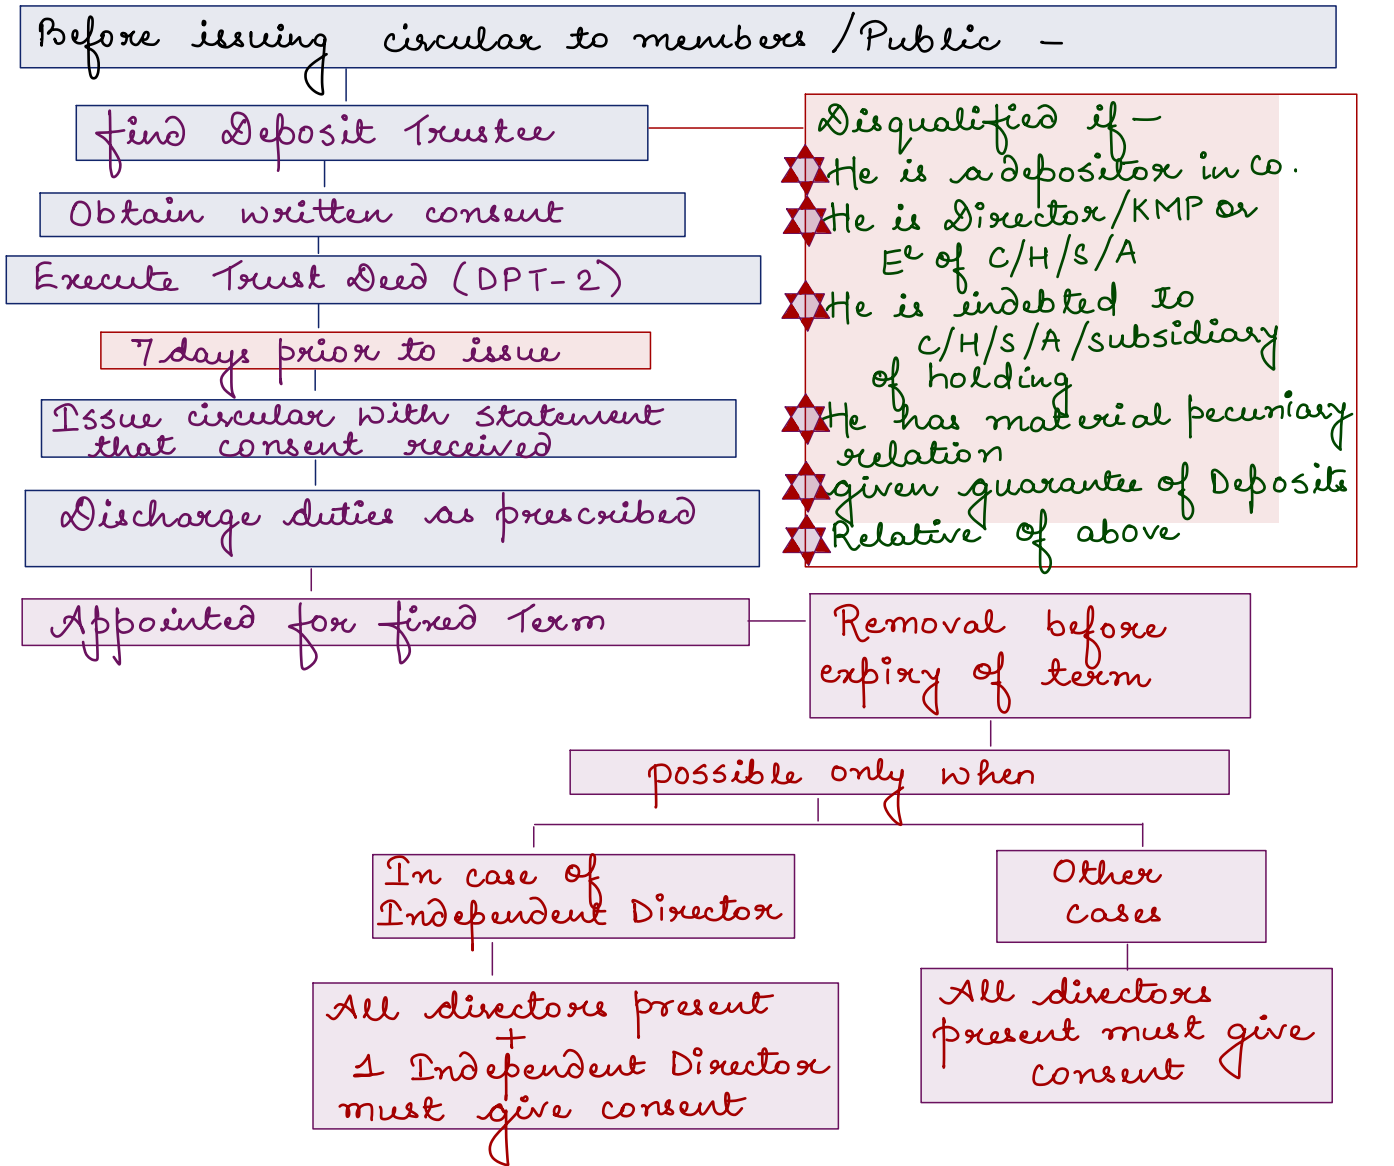 Before issuing circular to members /Public -
find Deposit Trustee
Obtain written consent
Execute Trust Deed (DPT-2)
7 days prior to issue
Issue circular with statement
that consent received
Discharge duties as prescribed
Appointed for fixed Term
Disqualified if -
He is a depositor in Co.
He is Director/KMP or
Ee of C/H/S/A
He is indebted to
C/H/S/A/subsidiary
of holding
He has material pecuniary
relation
given guarantee of Deposits
Relative of above
Removal before
expiry of term
possible only when
In case of
Independent Director
All directors present
+
1 Independent Director
must give consent
Other
cases
All directors
present must give
consent